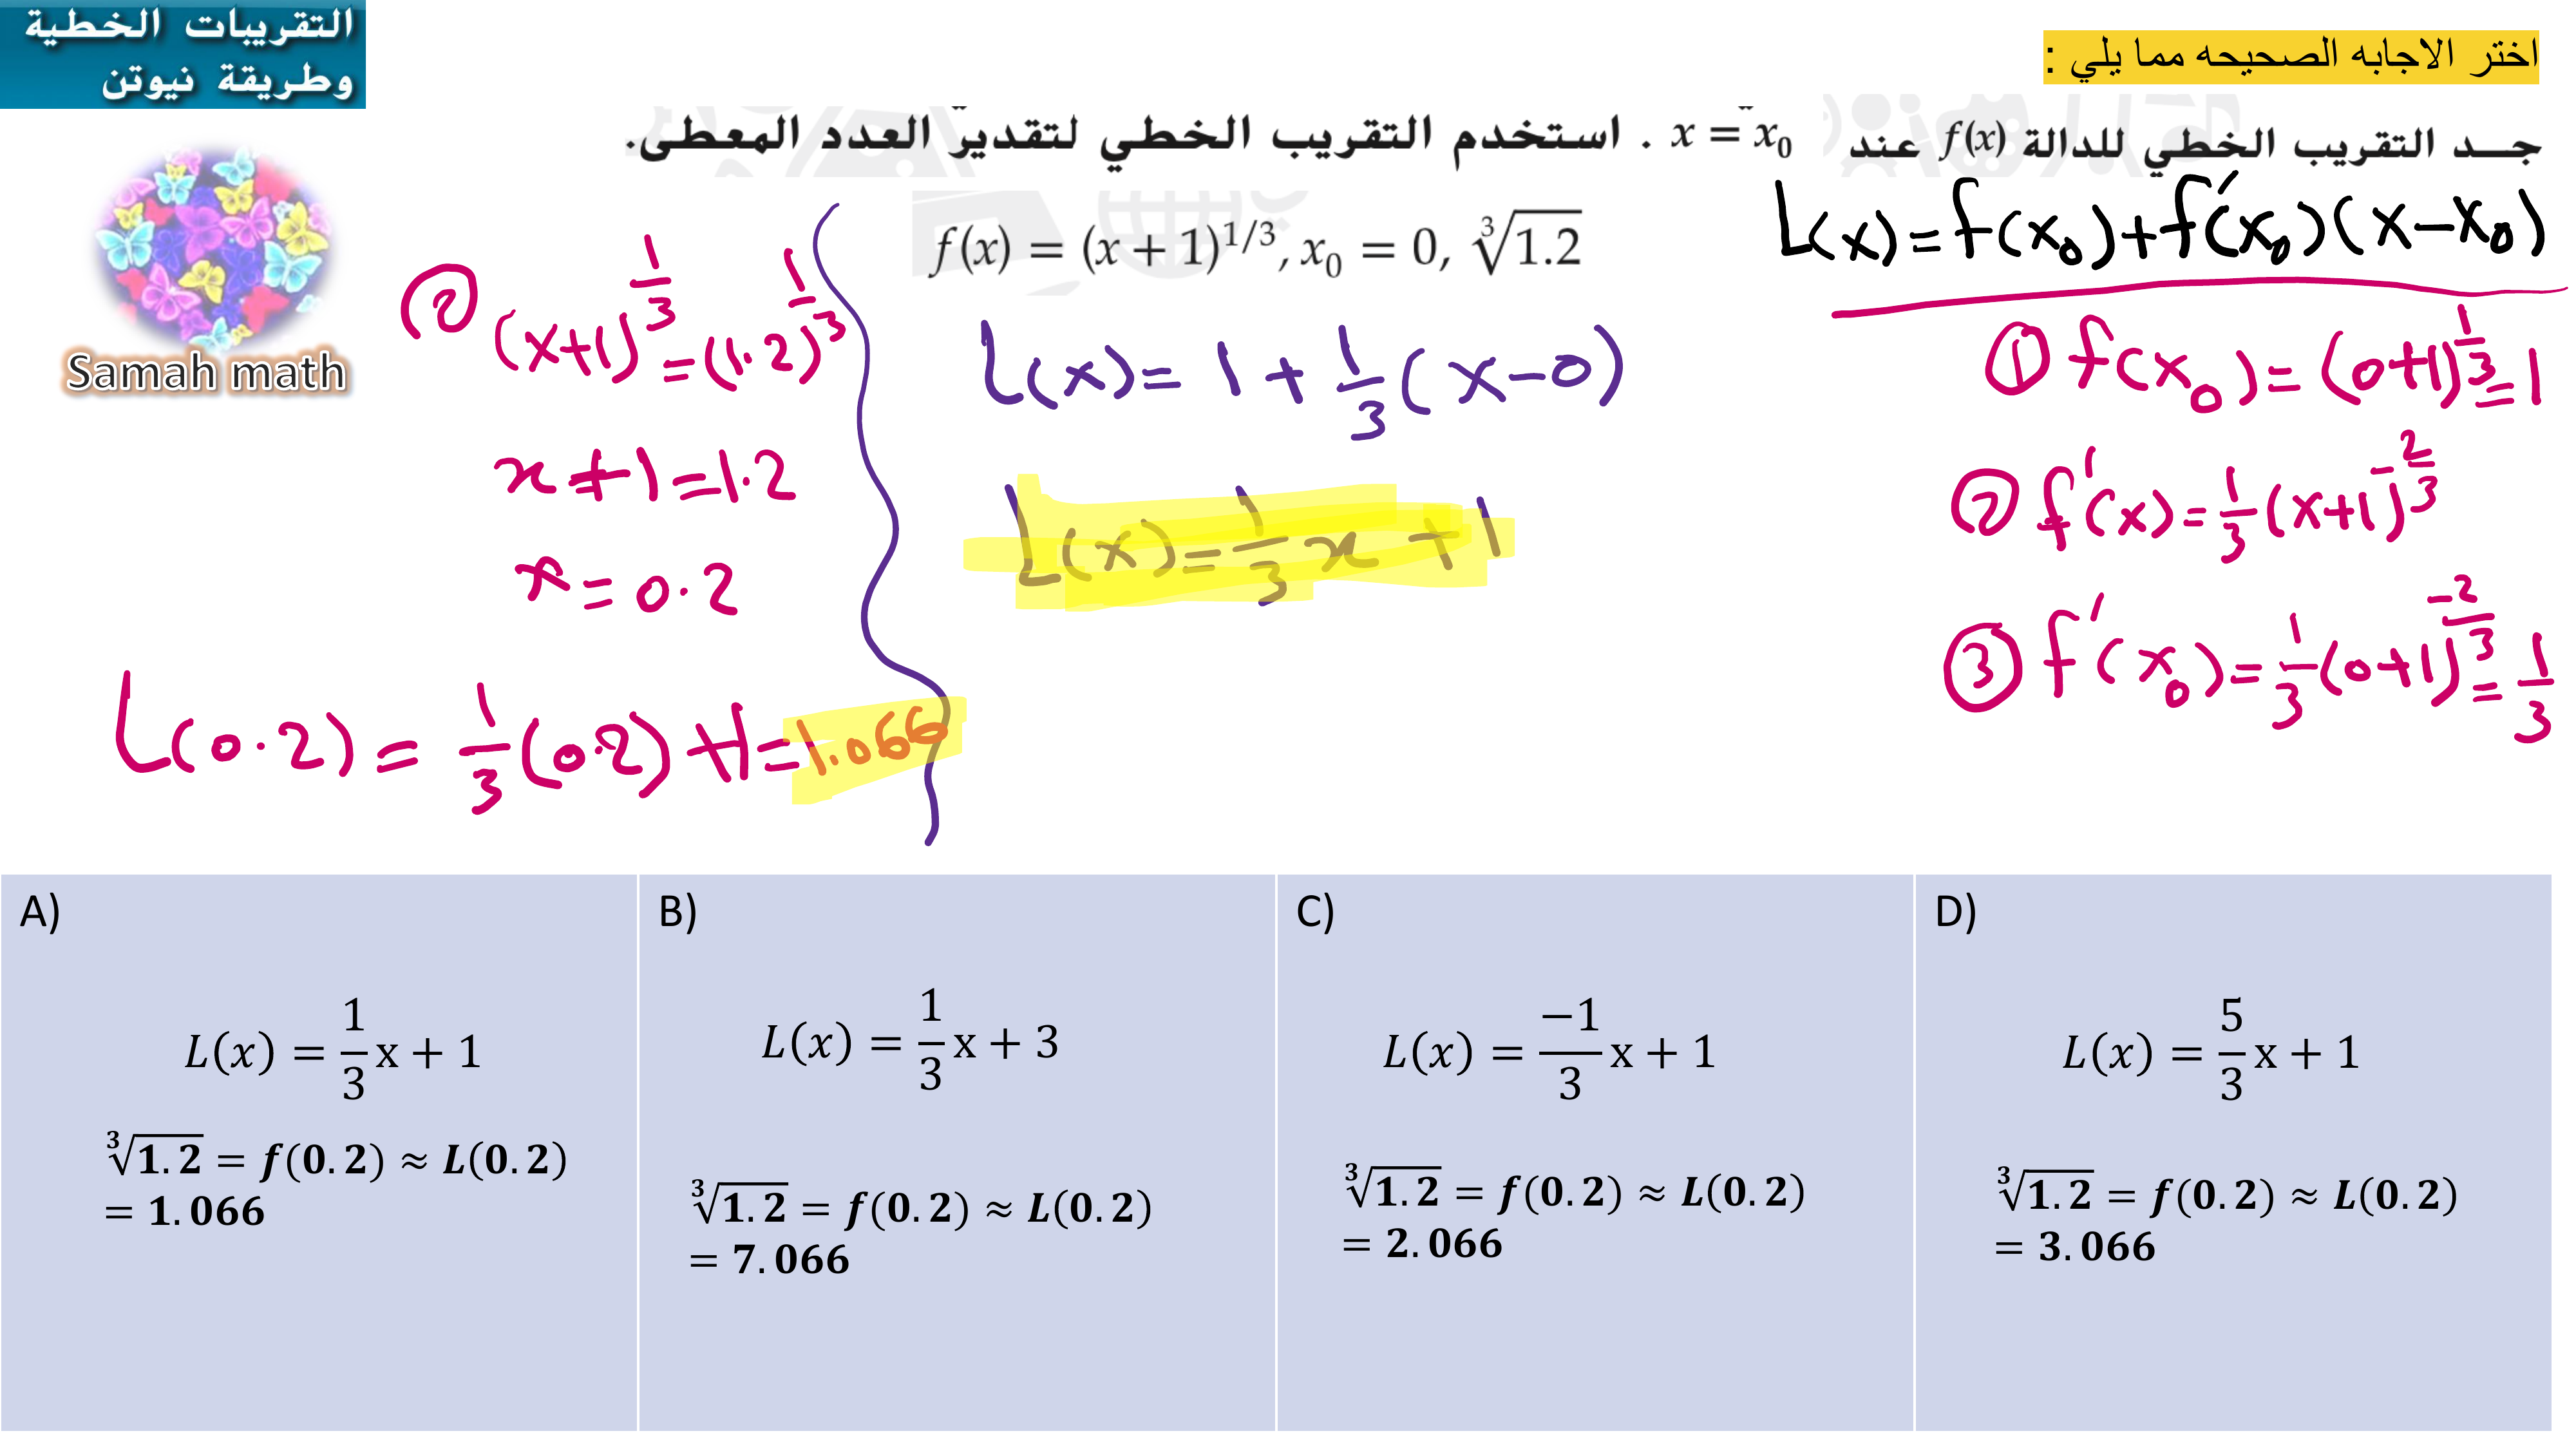 التقريبات الخطية
وطريقة نيوتن
Samah math
اختر الاجابه الصحيحه مما يلي :
جد التقريب الخطي للدالة f(x) عند x = x₀ . استخدم التقريب الخطي لتقدير العدد المعطى.
f(x) = (x + 1)^{1/3}, x₀ = 0, ∛1.2
L(x) = f(x₀) + f'(x₀)(x − x₀)
① f(x₀) = (0+1)^{1/3} = 1
② f'(x) = 1/3 (x+1)^{-2/3}
③ f'(x₀) = 1/3 (0+1)^{-2/3} = 1/3
L(x) = 1 + 1/3 (x − 0)
L(x) = 1/3 x + 1
② (x+1)^{1/3} = (1.2)^{1/3}
x + 1 = 1.2
x = 0.2
L(0.2) = 1/3 (0.2) + 1 = 1.066
A)
L(x) = 1/3 x + 1
∛1.2 = f(0.2) ≈ L(0.2)
= 1.066
B)
L(x) = 1/3 x + 3
∛1.2 = f(0.2) ≈ L(0.2)
= 7.066
C)
L(x) = −1/3 x + 1
∛1.2 = f(0.2) ≈ L(0.2)
= 2.066
D)
L(x) = 5/3 x + 1
∛1.2 = f(0.2) ≈ L(0.2)
= 3.066